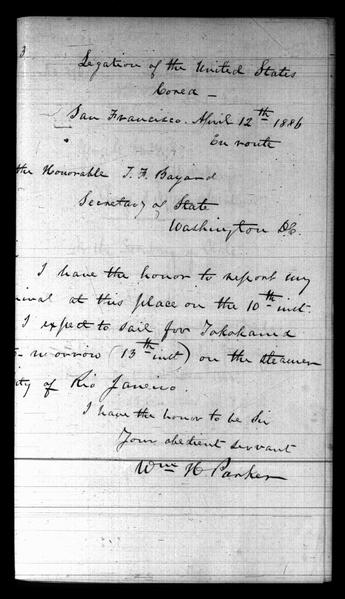 3
Legation of the United States
Corea -
San Francisco. April 12th 1886
En route
the Honorable T. F. Bayard
Secretary of State
Washington D.C.
I have the honor to report my
rival at this place on the 10th inst.
I expect to sail for Yokohama
morrow (13th inst) on the steamer
ity of Rio Janeiro.
I have the honor to be Sir
Your obedient servant
Wm H Parker